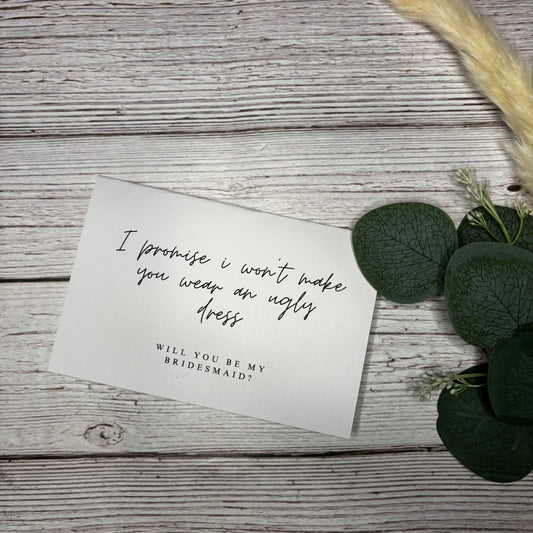 I promise i won't make
you wear an ugly
dress
WILL YOU BE MY
BRIDESMAID?